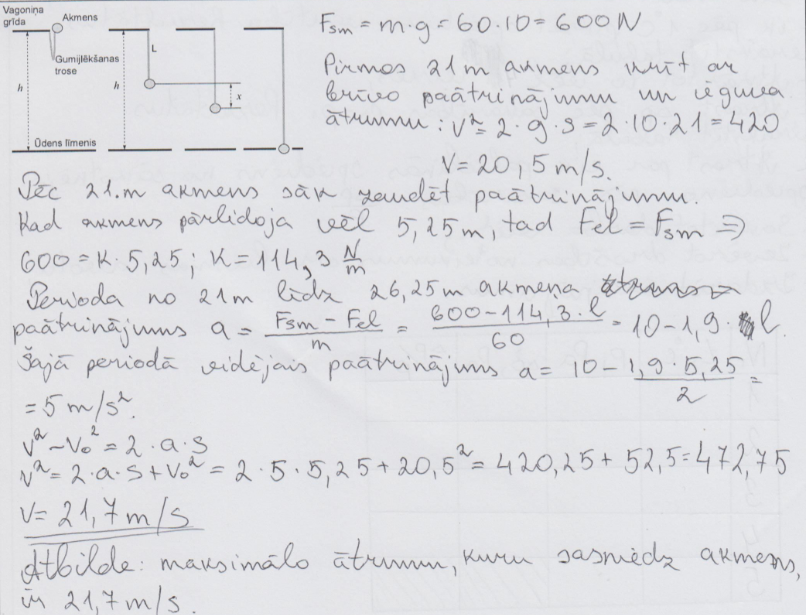 Vagoniņa grīda
Akmens
Gumijlēkšanas trose
h
h
L
x
Ūdens līmenis
Fsm = m·g = 60·10 = 600 N
Pirmos 21 m akmens krīt ar
brīvo paātrinājumu un iegūva
ātrumu: v² = 2·g·s = 2·10·21 = 420
V = 20,5 m/s.
Pēc 21.m akmens sāk zaudēt paātrinājumu.
Kad akmens pārlidoja vēl 5,25 m, tad Fel = Fsm ⇒
600 = K·5,25; K = 114,3 N/m
Perioda no 21 m līdz 26,25 m akmeņa
paātrinājums a = (Fsm − Fel)/m = (600 − 114,3·l)/60 = 10 − 1,9·l.
Šajā periodā vidējais paātrinājums a = 10 − (1,9·5,25)/2 =
= 5 m/s².
v² − v₀² = 2·a·s
v² = 2·a·s + v₀² = 2·5·5,25 + 20,5² = 420,25 + 52,5 = 472,75
V = 21,7 m/s
Atbilde: maksimālo ātrumu, kuru sasniedz akmens,
ir 21,7 m/s.